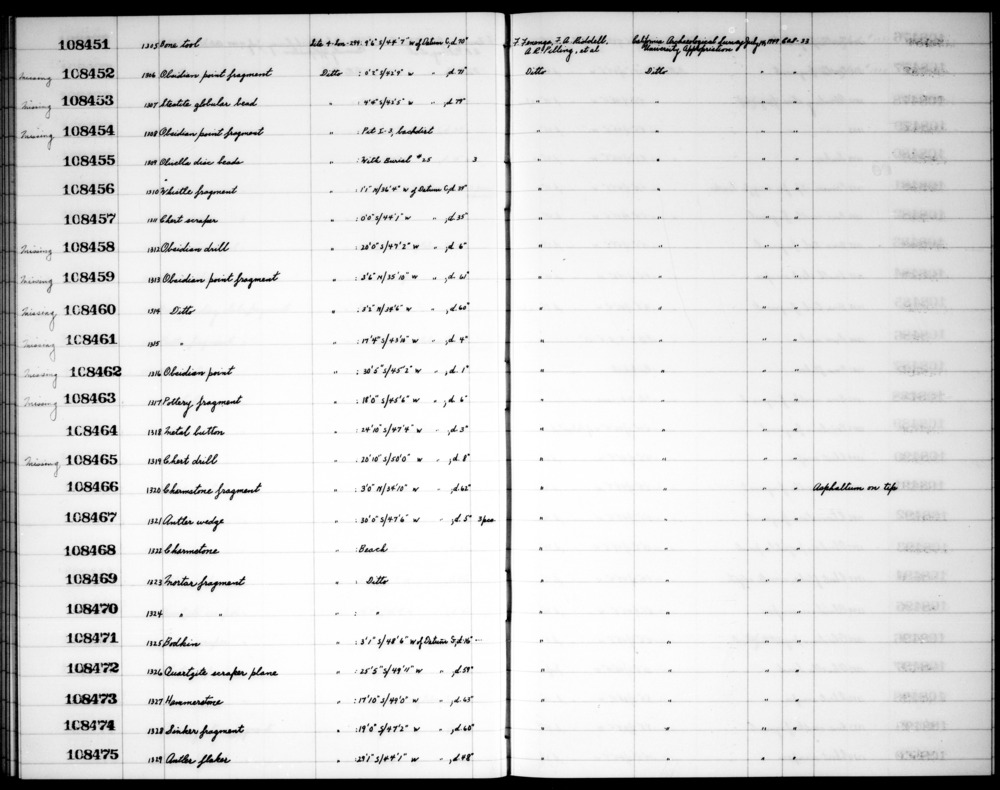 108451 1305 Bone tool Site 4-Son-299: 9'6" S/44'7" W of Datum C, d. 70" F. Fenenga, F. A. Riddell, A. R. Pilling, et al California Archaeological Survey July 19, 1949 Ext. 33
University Appropriation
Missing 108452 1306 Obsidian point fragment Ditto : W " , d. 77" Ditto Ditto " "
Missing 108453 1307 Steatite globular bead " : 4'4" S/45'5" W " , d. 79" " " " "
Missing 108454 1308 Obsidian point fragment " : Pit I-3, backdirt " " " "
108455 1309 Olivella disc beads " : With Burial #25 3 " " " "
108456 1310 Whistle fragment " : 1'1" N/36'4" W of Datum C, d. 39" " " " "
108457 1311 Chert scraper " : 0'0" S/44'1" W " , d. 35" " " " "
Missing 108458 1312 Obsidian drill " : 20'0" S/47'2" W " , d. 6" " " " "
Missing 108459 1313 Obsidian point fragment " : 3'6" N/35'10" W " , d. 61" " " " "
Missing 108460 1314 Ditto " : 5'5" N/34'6" W " , d. 60" " " " "
Missing 108461 1315 " " : 19'4" S/43'10" W " , d. 4" " " " "
Missing 108462 1316 Obsidian point " : 30'5" S/45'2" W " , d. 1" " " " "
Missing 108463 1317 Pottery fragment " : 18'0" S/45'6" W " , d. 6" " " " "
108464 1318 Metal button " : 24'10" S/47'4" W " , d. 3" " " " "
Missing 108465 1319 Chert drill " : 20'10" S/50'0" W " , d. 8" " " " "
108466 1320 Charmstone fragment " : 3'0" N/34'10" W " , d. 62" " " " " Asphaltum on tip
108467 1321 Antler wedge " : 30'0" S/47'6" W " , d. 5" 3 pcs " " " "
108468 1322 Charmstone " : Beach " " " "
108469 1323 Mortar fragment " : Ditto " " " "
108470 1324 " " " : " " " " "
108471 1325 Bodkin " : 3'1" S/48'6" W of Datum , d. 16" " " " "
108472 1326 Quartzite scraper plane " : 25'5" S/49'11" W " , d. 59" " " " "
108473 1327 Hammerstone " : 17'10" S/49'0" W " , d. 63" " " " "
108474 1328 Sinker fragment " : 19'0" S/47'2" W " , d. 60" " " " "
108475 1329 Antler flaker " : 29'1" S/44'1" W " , d. 48" " " " "